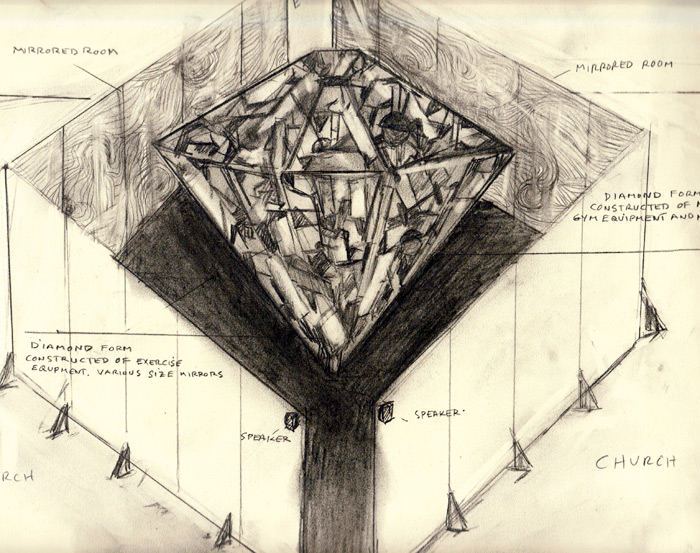 MIRRORED ROOM
MIRRORED ROOM
DIAMOND FORM
CONSTRUCTED OF
GYM EQUIPMENT AND
DIAMOND FORM
CONSTRUCTED OF EXERCISE
EQUPMENT. VARIOUS SIZE MIRRORS
SPEAKER
SPEAKER.
CHURCH
RCH